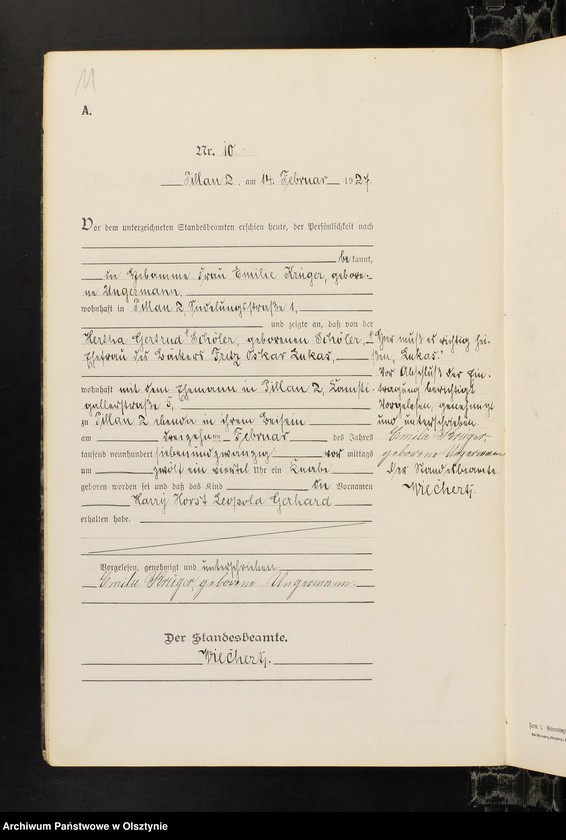 11
A.
Nr. 10.
Pillau 2, am 14. Februar 1927.
Vor dem unterzeichneten Standesbeamten erschien heute, der Persönlichkeit nach
be kannt,
die Hebamme Frau Emilie Krüger, gebore-
ne Ungermann,
wohnhaft in Pillau 2, Siedelungsstraße 1,
und zeigte an, daß von der
Hertha Gertrud Schöler, geborenen Schöler,
Ehefrau des Bäckers Fritz Oskar Lukas,
wohnhaft mit dem Ehemann in Pillau 2,
gallerstraße 5,
zu Pillau 2 ebenda in ihrem Beisein
am dreizehnten Februar des Jahres
tausend neunhundert siebenundzwanzig vor mittags
um zwölf ein viertel Uhr ein Knabe
geboren worden sei und daß das Kind die Vornamen
Harry Horst Leopold Gerhard
erhalten habe.
Vorgelesen, genehmigt und unterschrieben
Emilie Krüger, geborene Ungermann.
Der Standesbeamte.
Wiechert.
Hier muß es richtig hei-
ßen, "Lukas."
Vor Abschluß der Ein-
tragung berichtigt
Vorgelesen, genehmigt
und unterschrieben
Emilie Krüger,
geborene Ungermann
Der Standesbeamte
Wiechert.
Archiwum Państwowe w Olsztynie